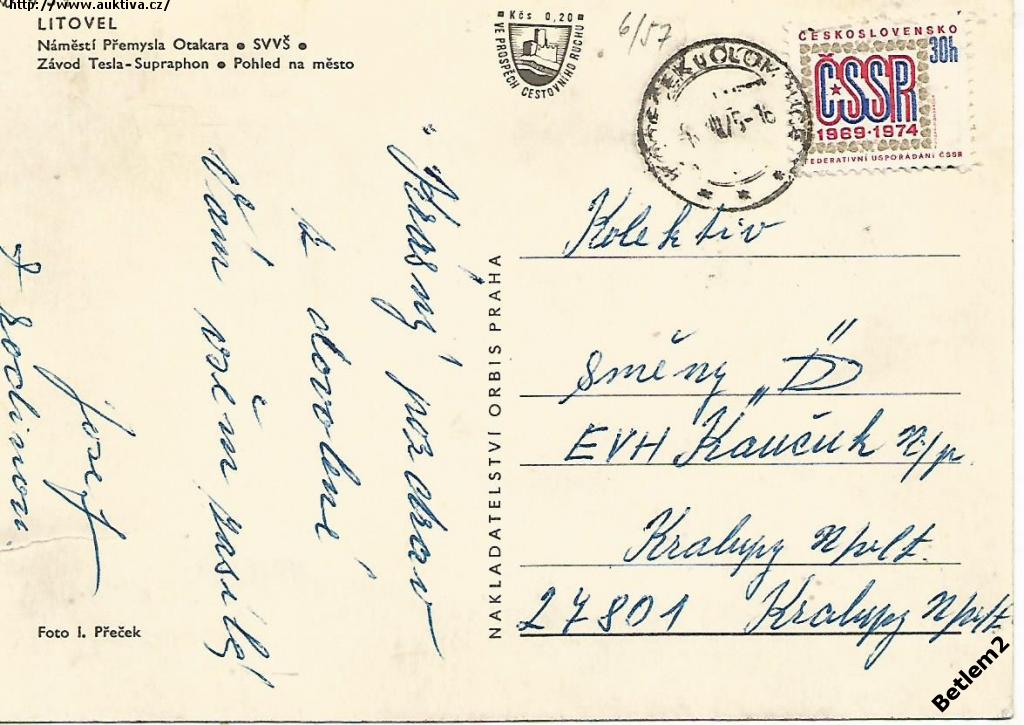 http://www.auktiva.cz/
LITOVEL
Náměstí Přemysla Otakara • SVVŠ •
Závod Tesla-Supraphon • Pohled na město
Kčs 0,20
VE PROSPĚCH CESTOVNÍHO RUCHU
6/57
ČESKOSLOVENSKO
30h
ČSSR
1969·1974
FEDERATIVNÍ USPOŘÁDÁNÍ ČSSR
"Krásný pozdrav
z dovolené
Vám všem zasílá
Josef
s rodinou
NAKLADATELSTVÍ ORBIS PRAHA
Kolektiv
směny „D"
EVH Kaučuk n/p.
Kralupy n/vlt.
27801 Kralupy n/vlt.
Foto I. Přeček
Betlem2